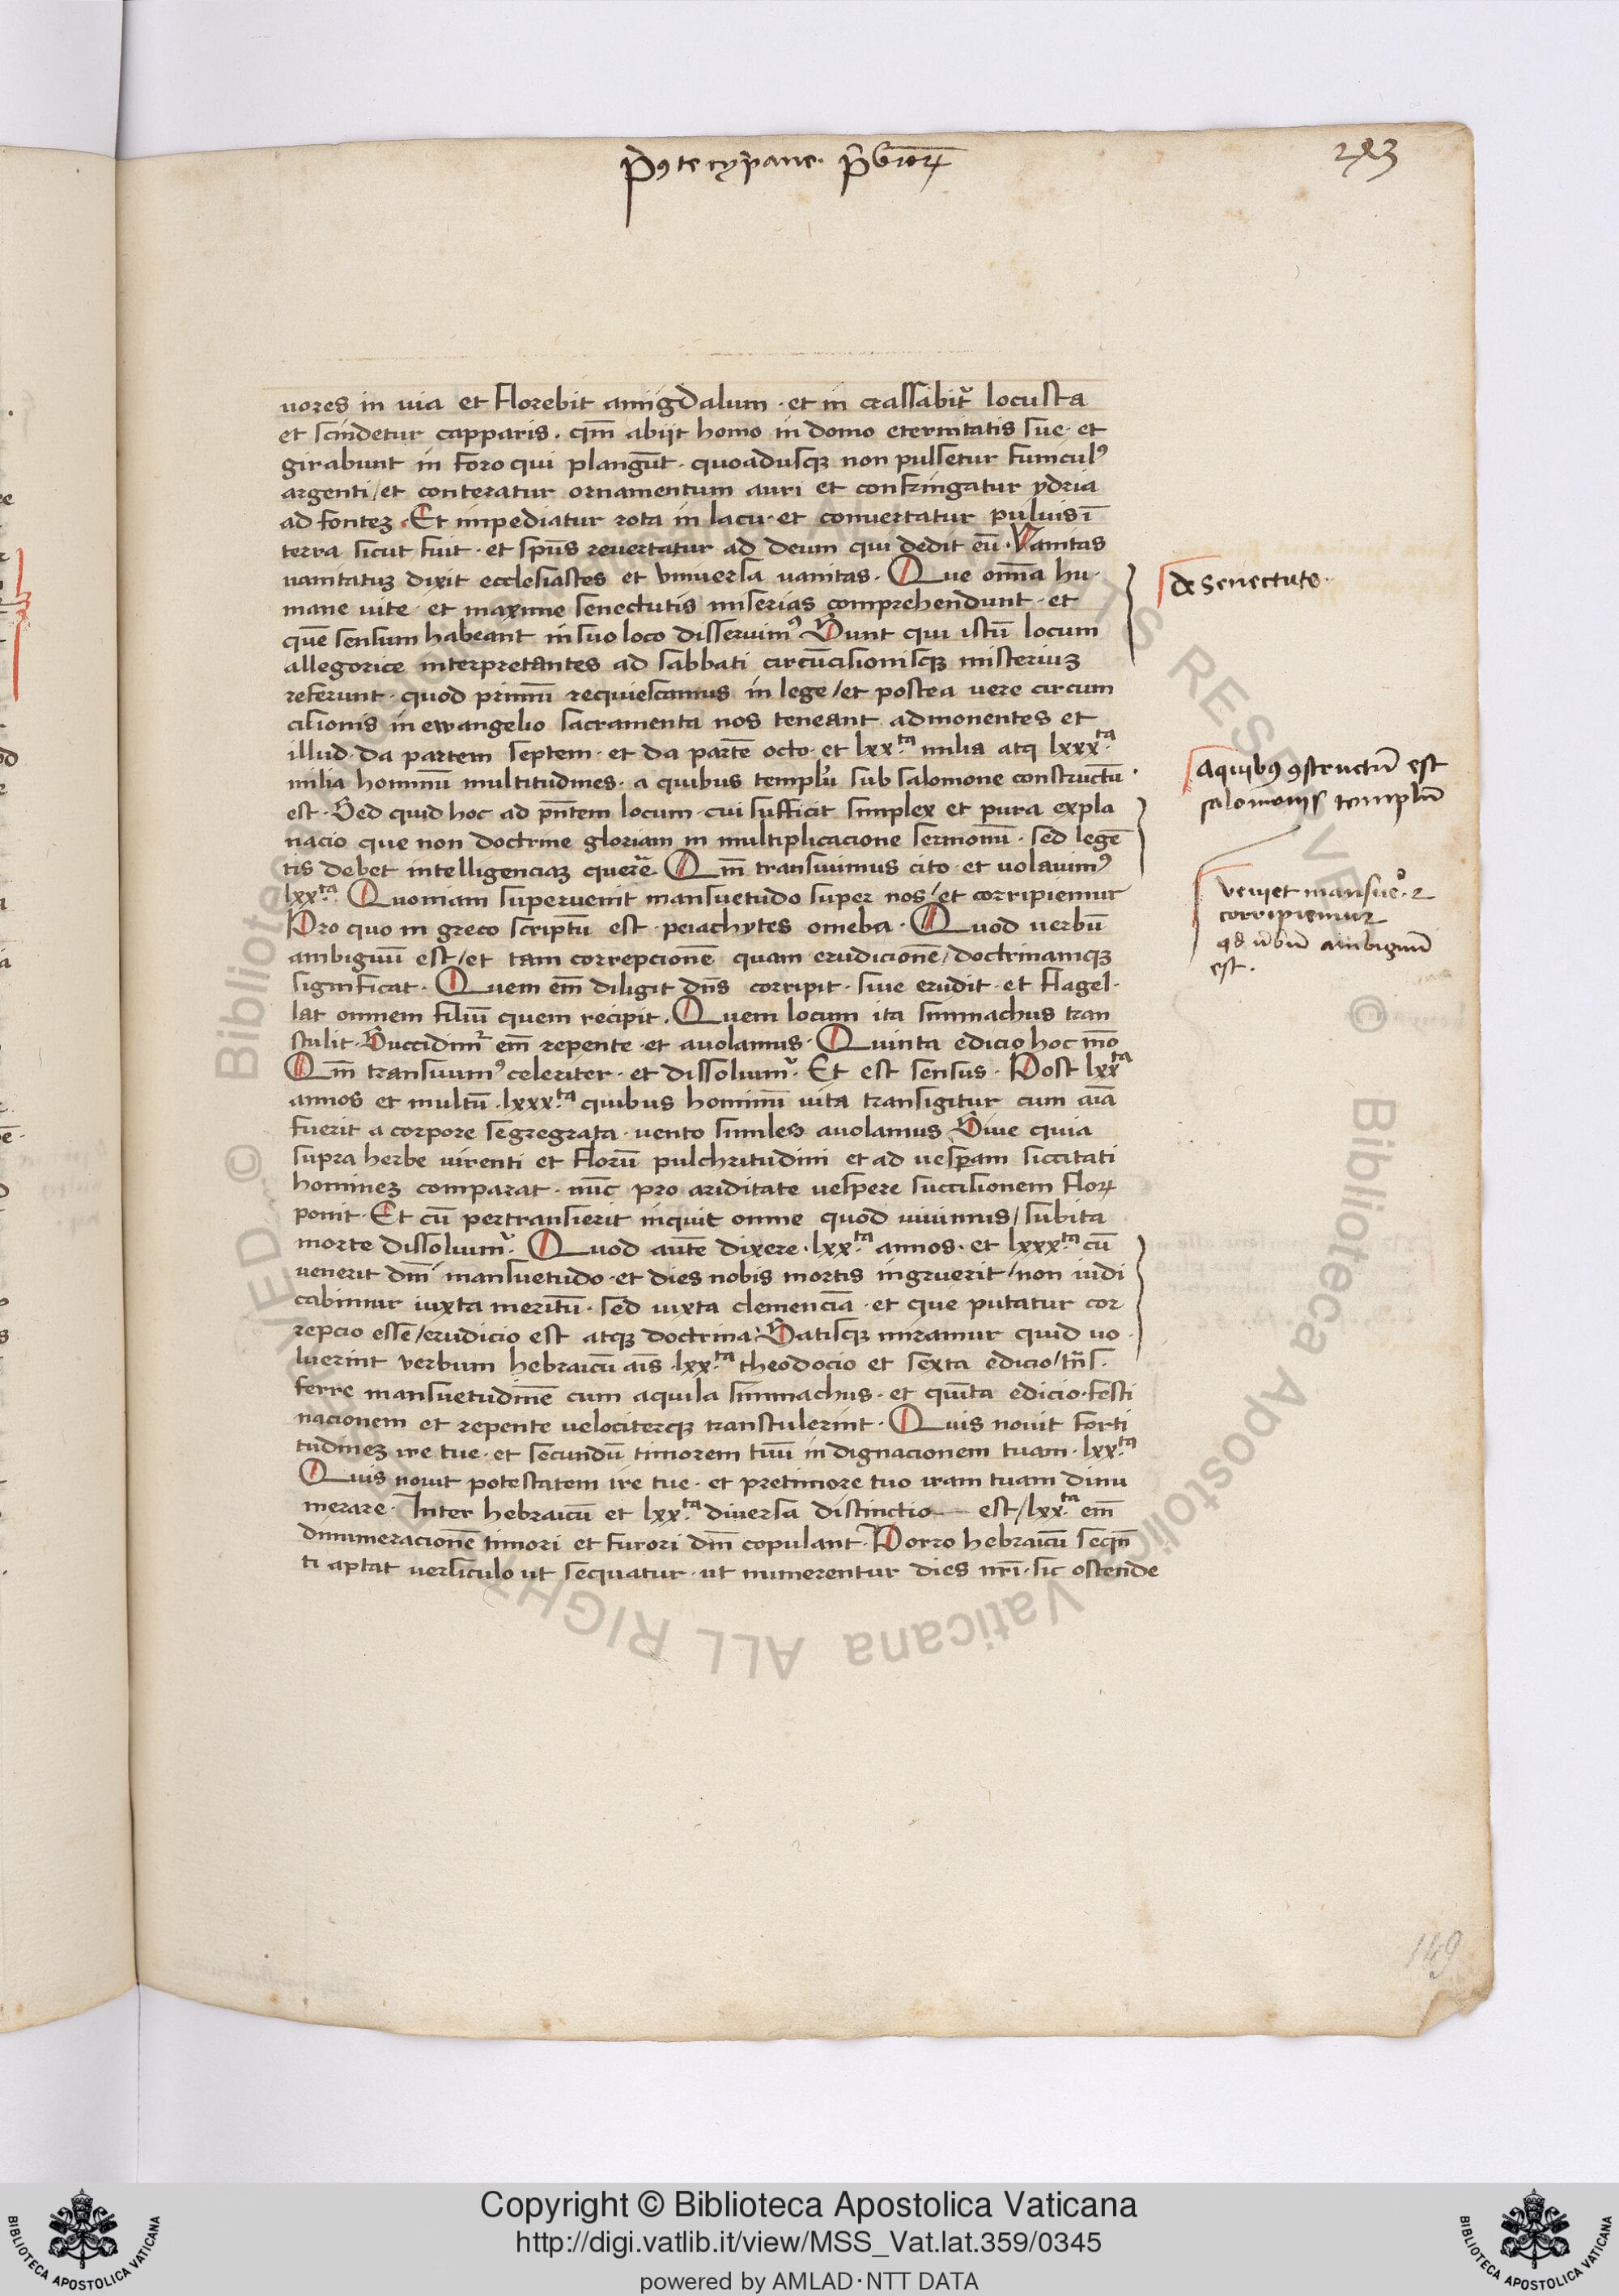 p̄9 te cyp̄ane. p̄sbr̄oꝝ
283
uores in uia et florebit amigdalum · et in crassabit᷑ locusta
et scindetur capparis · qm̄ abijt homo in domo eternitatis sue · et
girabunt in foro qui plangūt · quoadusqꝫ non pulsetur funiculꝰ
argenti / et conteratur ornamentum auri et confringatur ydria
ad fonteꝫ · Et impediatur rota in lacu · et conuertatur puluis ī
terra sicut fuit · et sp̄us reuertatur ad deum qui dedit eū · Vanitas
uanitatuꝫ dixit ecclesiastes et vniuersa uanitas · Que om̄ia hu·
mane uite · et maxime senectutis miserias comprehendunt · et
quē sensum habeant in suo loco disseruimꝰ Sunt qui istū locum
allegorice interpretantes ad sabbati circūcisionisqꝫ misteriuꝫ
referunt · quod primū requiescamus in lege / et postea uere circum
cisionis in ewangelio sacramenta nos teneant admonentes et
illud · da partem septem · et da partē octo · et lxx.ta milia atqꝫ lxxx.ta
milia hominū multitudines · a quibus templū sub salomone constructū ·
est · Sed quid hoc ad pn̄tem locum · cui sufficit simplex et pura expla
nacio que non doctrine gloriam in multiplicacione sermonū · sed legē
tis debet intelligenciaꝫ quere᷑. Qm̄ transiuimus cito · et uolauimꝰ
lxx.ta Quoniam superuenit mansuetudo super nos / et corripiemur
Pro quo in greco scriptū est · peiachytes omeba · Quod uerbū
ambiguū est / et tam correpcionē quam erudicionē / doctrinamqꝫ
significat · Quem em̄ diligit dn̄s corripit · siue erudit · et flagel·
lat omnem filiū quem recipit · Quem locum ita simmachus tran
stulit · Succidim᷑ em̄ repente · et auolamus · Quinta edicio hoc mō
Qm̄ transiuimꝰ celeriter · et dissoluim᷑ · Et est sensus · Post lxxta
annos et multū · lxxx.ta quibus hominū uita transigitur cum aīa
fuerit a corpore segregrata · uento similes auolamus Siue quia
supra herbe uirenti et florū pulchritudini et ad uesp̄am siccitati
homineꝫ comparat · nūc pro ariditate uespere succisionem floꝝ
ponit · Et cū pertransierit inquit omne quod uiuimus / subita
morte dissoluim᷑ · Quod autē dixere · lxx.ta annos · et lxxx.ta cū
uenerit dm̄ mansuetudo · et dies nobis mortis ingruerit / non iudi
cabimur iuxta meritū · sed iuxta clemenciā · et que putatur cor
repcio esse / erudicio est atqꝫ doctrina · Satisqꝫ miramur quid uo ·
luerint verbum hebraicū aīs · lxx.ta theodocio et sexta edicio / tn̄s·
ferre mansuetudinē cum aquila simmachus · et quīta edicio · festi
nacionem et repente velociterqꝫ transtulerint · Quis nouit forti
tudineꝫ ire tue · et secundū timorem tuū indignacionem tuam · lxx.ta
Quis nouit potestatem ire tue · et pretimore tuo iram tuam dinu
merare · Inter hebraicū et lxx.ta diuersa distinctio est / lxx.ta em̄
dinumeracionē timori et furori dm̄ copulant · Porro hebraicū seqn̄
ti aptat uersiculo ut sequatur · ut numerentur dies nr̄i · sic ostende
de Senectute·
Aquibꝰ 9structū est
salomonis templū
veniet mansueo · 2
corripiemur
qd ūbū ambiguū
est ·
149
Copyright © Biblioteca Apostolica Vaticana
http://digi.vatlib.it/view/MSS_Vat.lat.359/0345
powered by AMLAD·NTT DATA
BIBLIOTECA APOSTOLICA VATICANA
BIBLIOTECA APOSTOLICA VATICANA
© Biblioteca Apostolica Vaticana ALL RIGHTS RESERVED